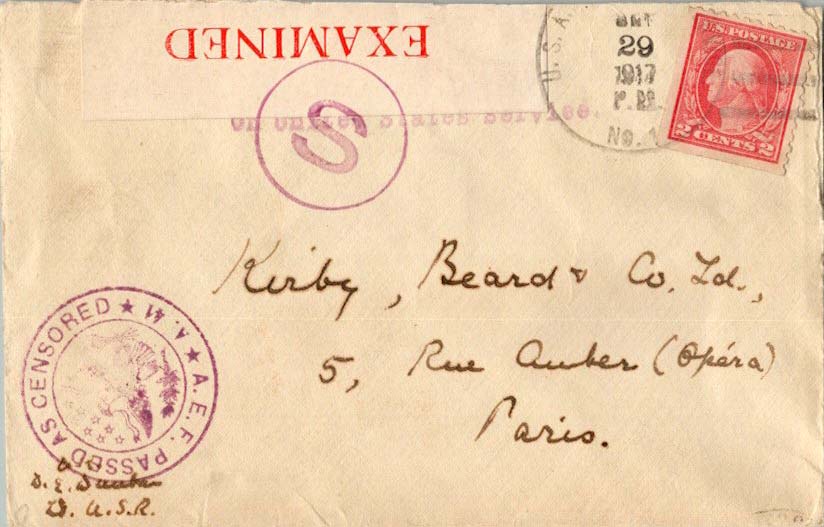 EXAMINED
S
On United States Service.
U. S. A.
29
1917
P. M.
No. 1
U.S. POSTAGE
2 CENTS 2
Kirby, Beard & Co. Ld.,
5, Rue Auber (Opéra)
Paris.
A.E.F. PASSED AS CENSORED ★ A.M ★
D. E.
U.S.R.